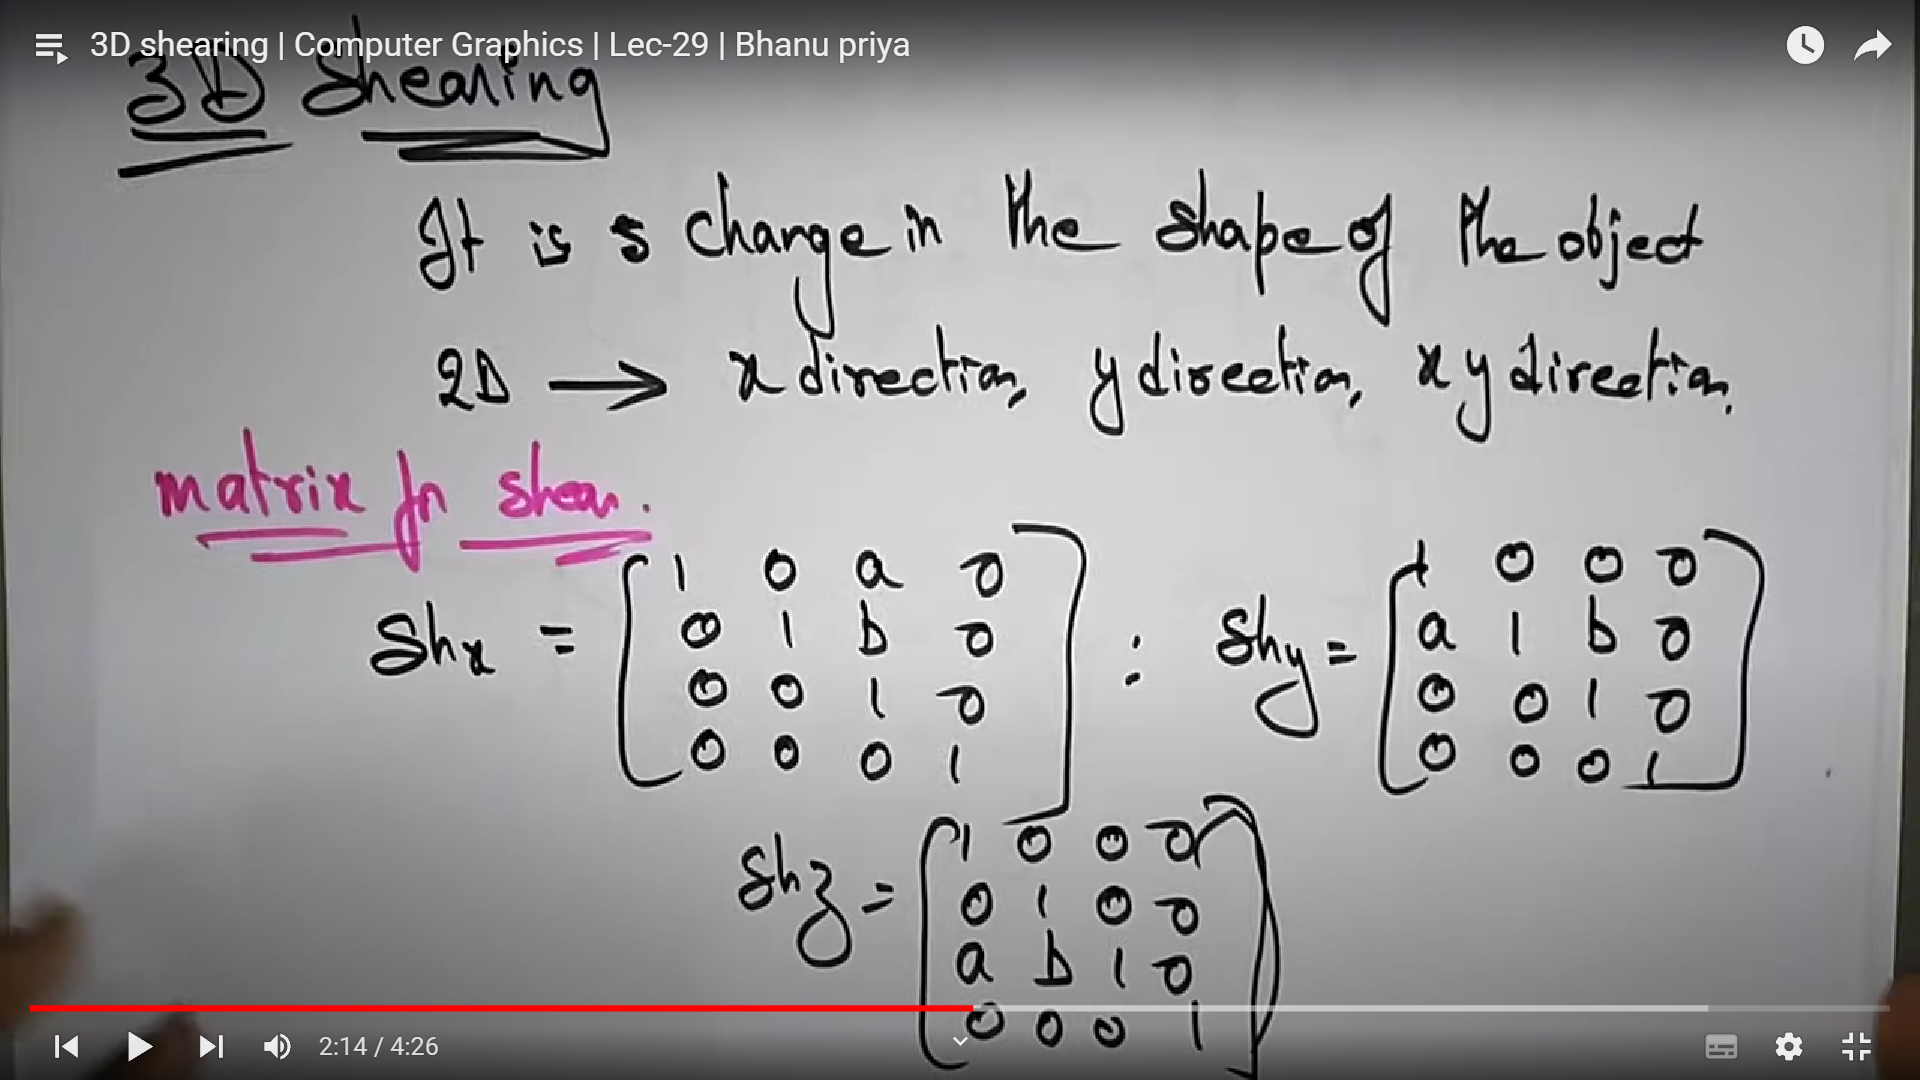 3D shearing | Computer Graphics | Lec-29 | Bhanu priya
3D Shearing
It is s change in the shape of the object
2D → x direction, y direction, xy direction.
matrix for shear.
Shx = [1 0 a 0
0 1 b 0
0 0 1 0
0 0 0 1] : Shy = [1 0 0 0
a 1 b 0
0 0 1 0
0 0 0 1]
Shz = [1 0 0 0
0 1 0 0
a b 1 0
0 0 0 1]
2:14 / 4:26